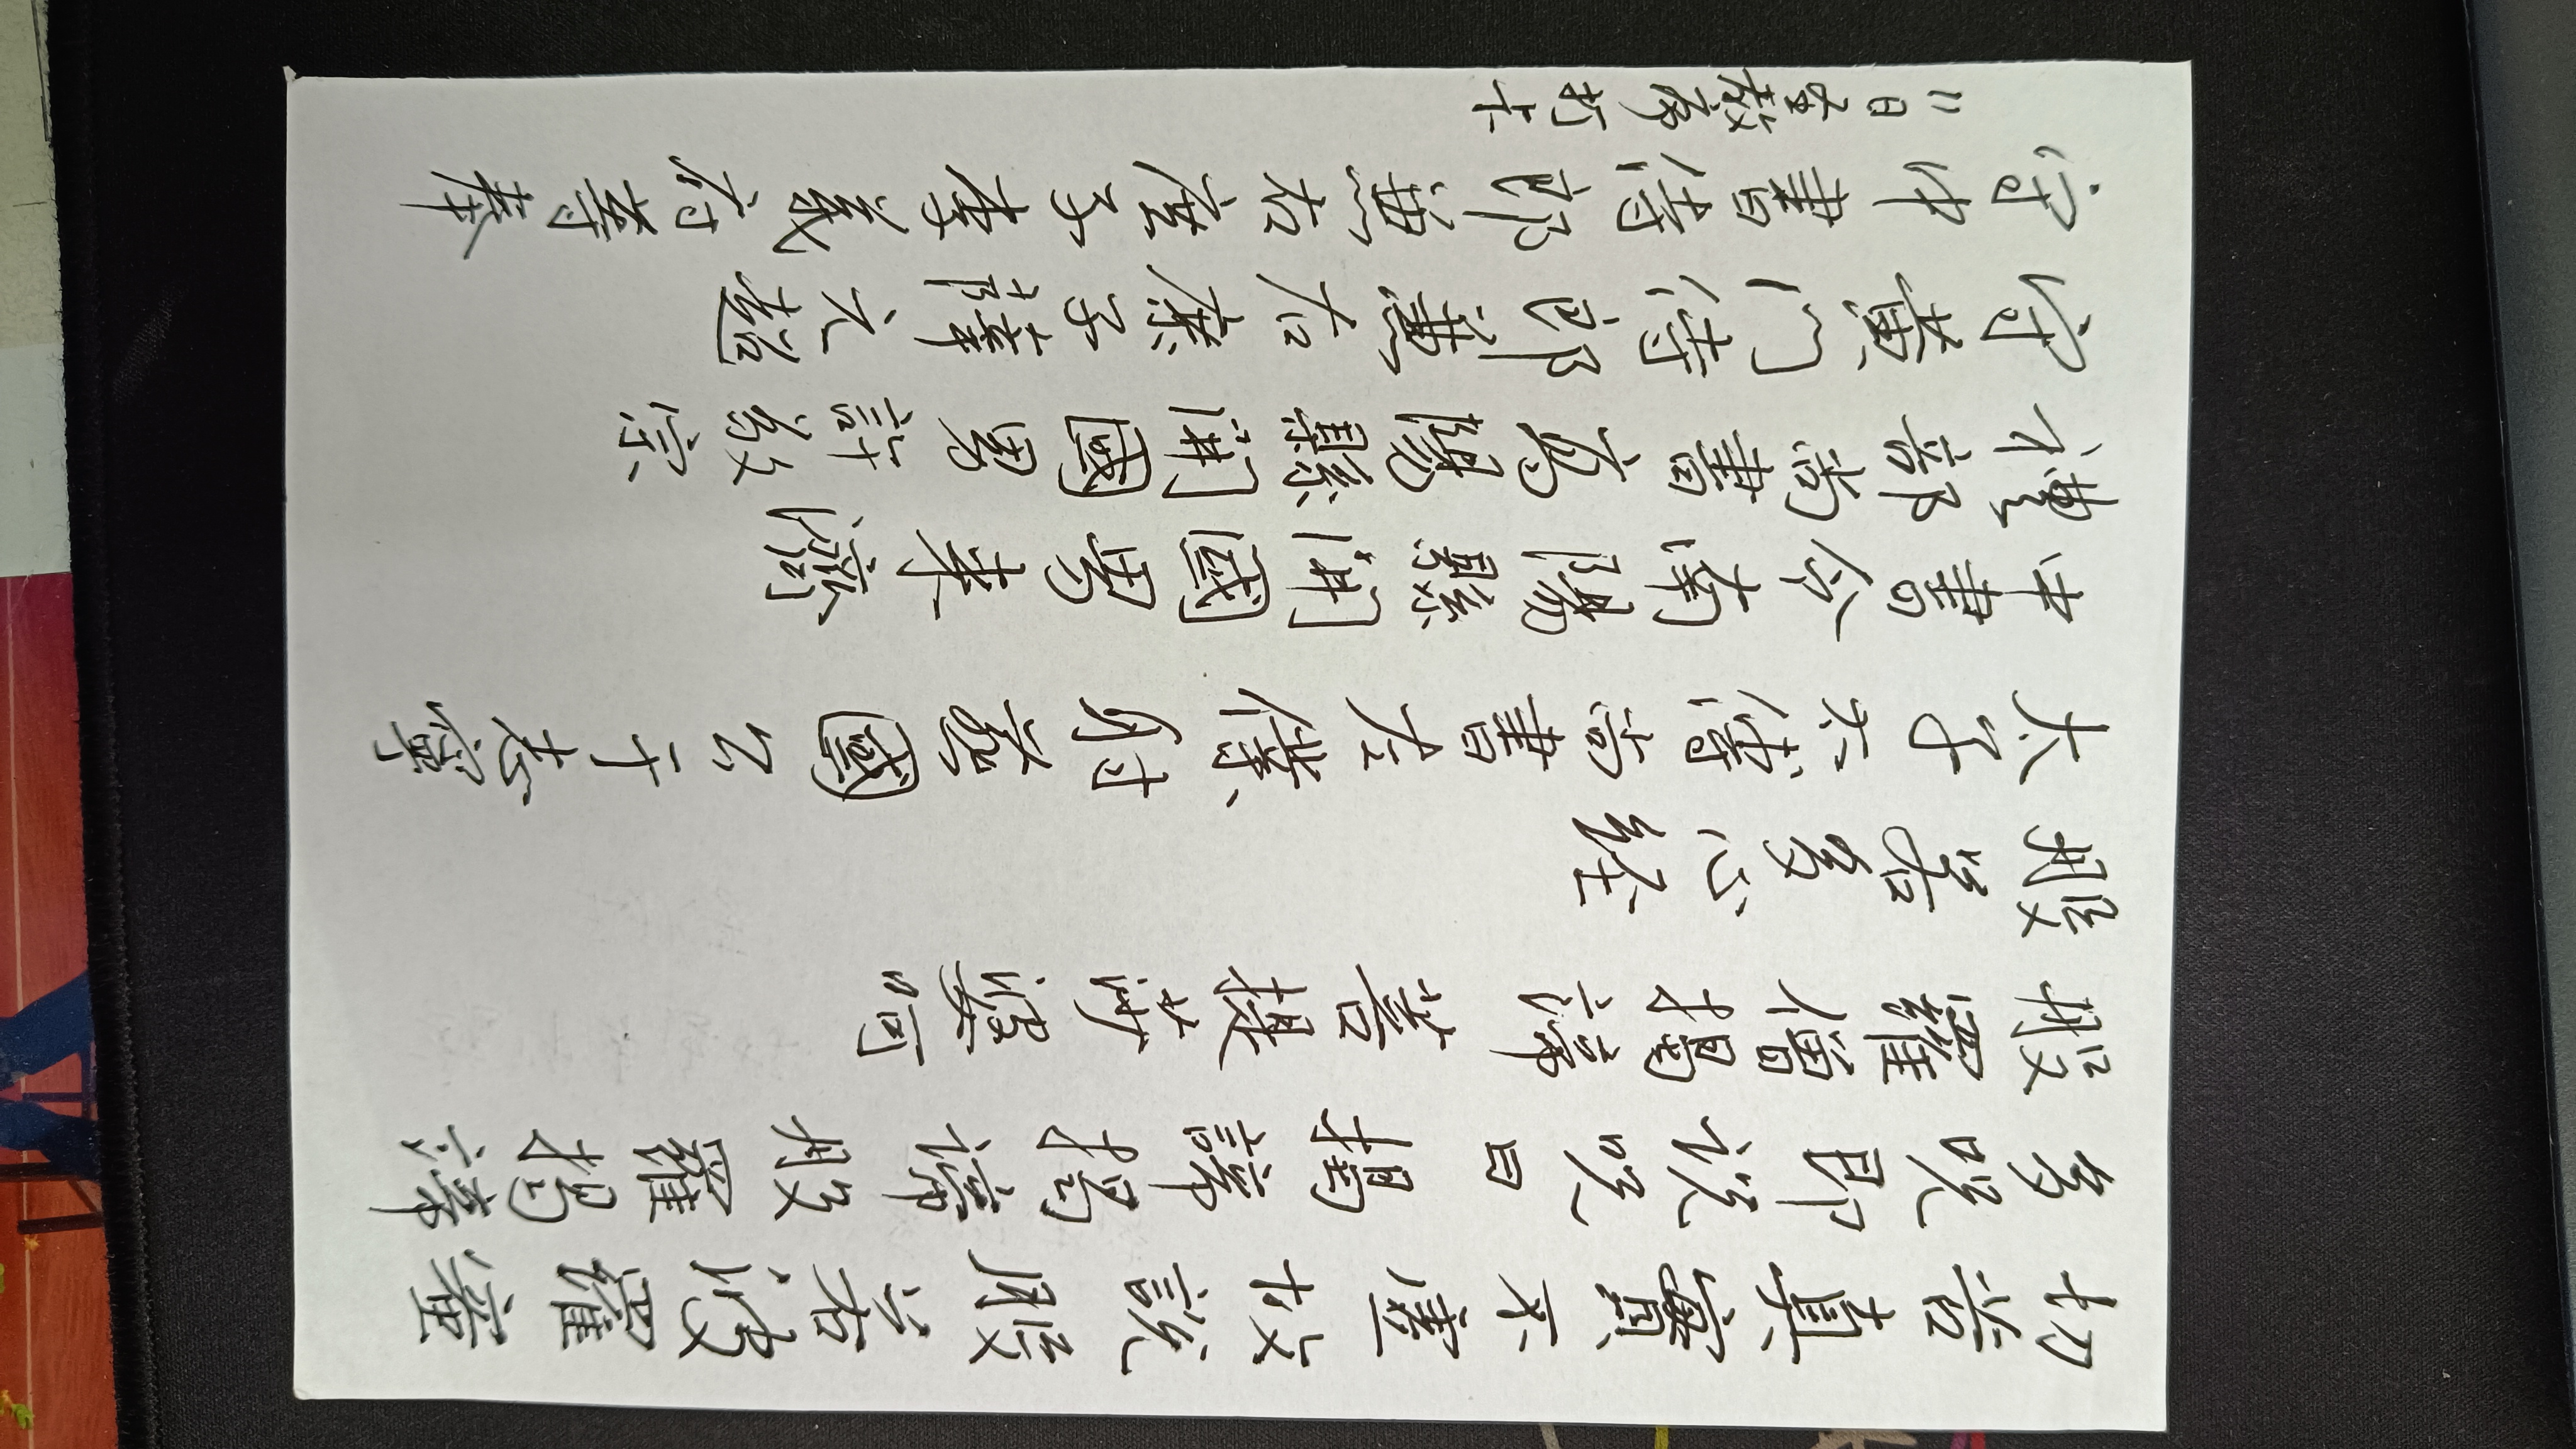 切苦真實不虛故說般若波羅蜜
多咒即說咒曰 揭諦揭諦般羅揭諦
般羅僧揭諦 菩提莎婆呵
般若多心經
太子太傅尚書左僕射燕國公于志寧
中書令南陽縣開國男來濟
禮部尚書高陽縣開國男許敬宗
守黃門侍郎兼右庶子薛元超
守中書侍郎兼右庶子李義府等奉